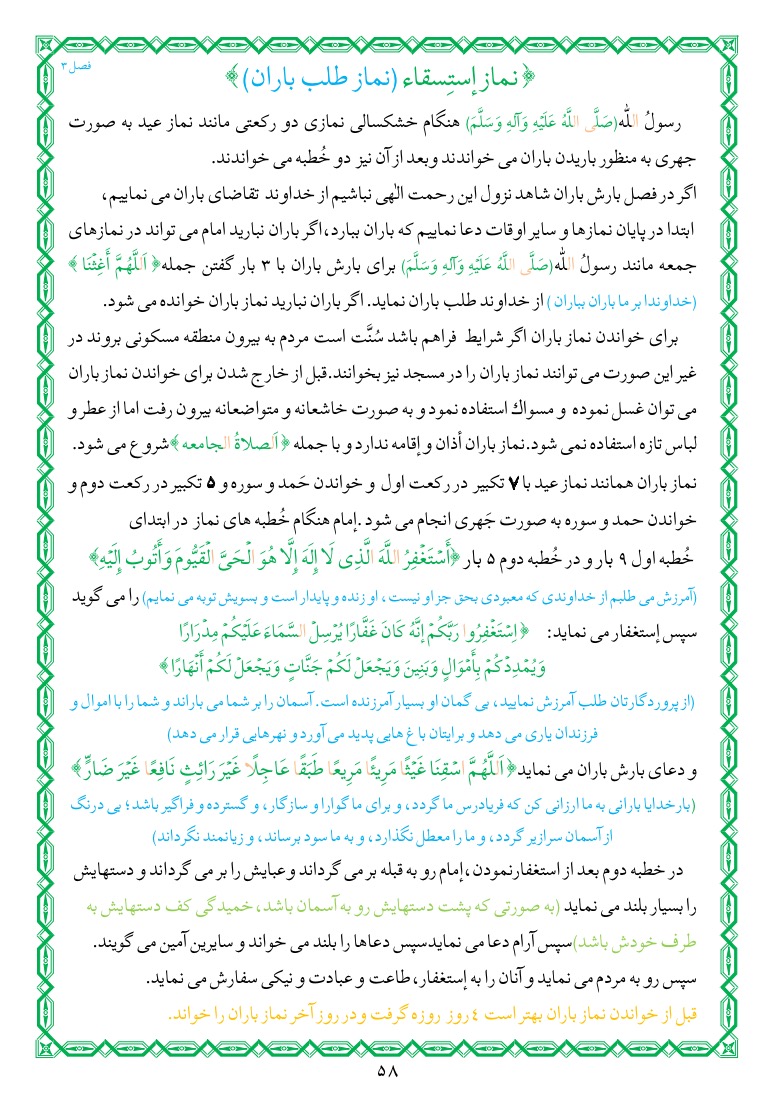 فصل ۳
﴿ نماز إستِسقاء (نماز طلب باران) ﴾
رسولُ الله(صَلَّی اللَّهُ عَلَیْهِ وَآلهِ وَسَلَّمَ) هنگام خشکسالی نمازی دو رکعتی مانند نماز عید به صورت
جهری به منظور باریدن باران می خواندند وبعد از آن نیز دو خُطبه می خواندند.
اگر در فصل بارش باران شاهد نزول این رحمت الٰهی نباشیم از خداوند تقاضای باران می نماییم،
ابتدا در پایان نمازها و سایر اوقات دعا نماییم که باران ببارد،اگر باران نبارید امام می تواند در نمازهای
جمعه مانند رسولُ الله(صَلَّی اللَّهُ عَلَیْهِ وَآلهِ وَسَلَّمَ) برای بارش باران با ۳ بار گفتن جمله﴿ اَللَّهُمَّ أَغِثْنَا ﴾
(خداوندا بر ما باران بباران ) از خداوند طلب باران نماید. اگر باران نبارید نماز باران خوانده می شود.
برای خواندن نماز باران اگر شرایط فراهم باشد سُنَّت است مردم به بیرون منطقه مسکونی بروند در
غیر این صورت می توانند نماز باران را در مسجد نیز بخوانند.قبل از خارج شدن برای خواندن نماز باران
می توان غسل نموده و مسواك استفاده نمود و به صورت خاشعانه و متواضعانه بیرون رفت اما از عطر و
لباس تازه استفاده نمی شود.نماز باران أذان و إقامه ندارد و با جمله ﴿ اَلصلاةُ الجامعه ﴾شروع می شود.
نماز باران همانند نماز عید با ۷ تکبیر در رکعت اول و خواندن حَمد و سوره و ۵ تکبیر در رکعت دوم و
خواندن حمد و سوره به صورت جَهری انجام می شود .إمام هنگام خُطبه های نماز در ابتدای
خُطبه اول ۹ بار و در خُطبه دوم ۵ بار ﴿أَسْتَغْفِرُ اللَّهَ الَّذِی لَا إِلَهَ إِلَّا هُوَ الْحَیَّ الْقَیُّومَ وَأَتُوبُ إِلَیْهِ﴾
(آمرزش می طلبم از خداوندی که معبودی بحق جز او نیست ، او زنده و پایدار است و بسویش توبه می نمایم) را می گوید
سپس إستغفار می نماید: ﴿ اِسْتَغْفِرُوا رَبَّكُمْ إِنَّهُ كَانَ غَفَّارًا یُرْسِلِ السَّمَاءَ عَلَیْكُمْ مِدْرَارًا
وَیُمْدِدْكُمْ بِأَمْوَالٍ وَبَنِینَ وَیَجْعَلْ لَكُمْ جَنَّاتٍ وَیَجْعَلْ لَكُمْ أَنْهَارًا ﴾
(از پروردگارتان طلب آمرزش نمایید، بی گمان او بسیار آمرزنده است. آسمان را بر شما می باراند و شما را با اموال و
فرزندان یاری می دهد و برایتان باغ هایی پدید می آورد و نهرهایی قرار می دهد)
و دعای بارش باران می نماید﴿ اَللَّهُمَّ اسْقِنَا غَیْثًا مَرِیئًا مَرِیعًا طَبَقًا عَاجِلًا غَیْرَ رَائِثٍ نَافِعًا غَیْرَ ضَارٍّ ﴾
(بارخدایا بارانی به ما ارزانی کن که فریادرس ما گردد، و برای ما گوارا و سازگار، و گسترده و فراگیر باشد؛ بی درنگ
از آسمان سرازیر گردد، و ما را معطل نگذارد، و به ما سود برساند، و زیانمند نگرداند)
در خطبه دوم بعد از استغفارنمودن ،إمام رو به قبله بر می گرداند وعبایش را بر می گرداند و دستهایش
را بسیار بلند می نماید (به صورتی که پشت دستهایش رو به آسمان باشد، خمیدگی کف دستهایش به
طرف خودش باشد)سپس آرام دعا می نمایدسپس دعاها را بلند می خواند و سایرین آمین می گویند.
سپس رو به مردم می نماید و آنان را به إستغفار، طاعت و عبادت و نیکی سفارش می نماید.
قبل از خواندن نماز باران بهتر است ٤ روز روزه گرفت و در روز آخر نماز باران را خواند.
۵۸